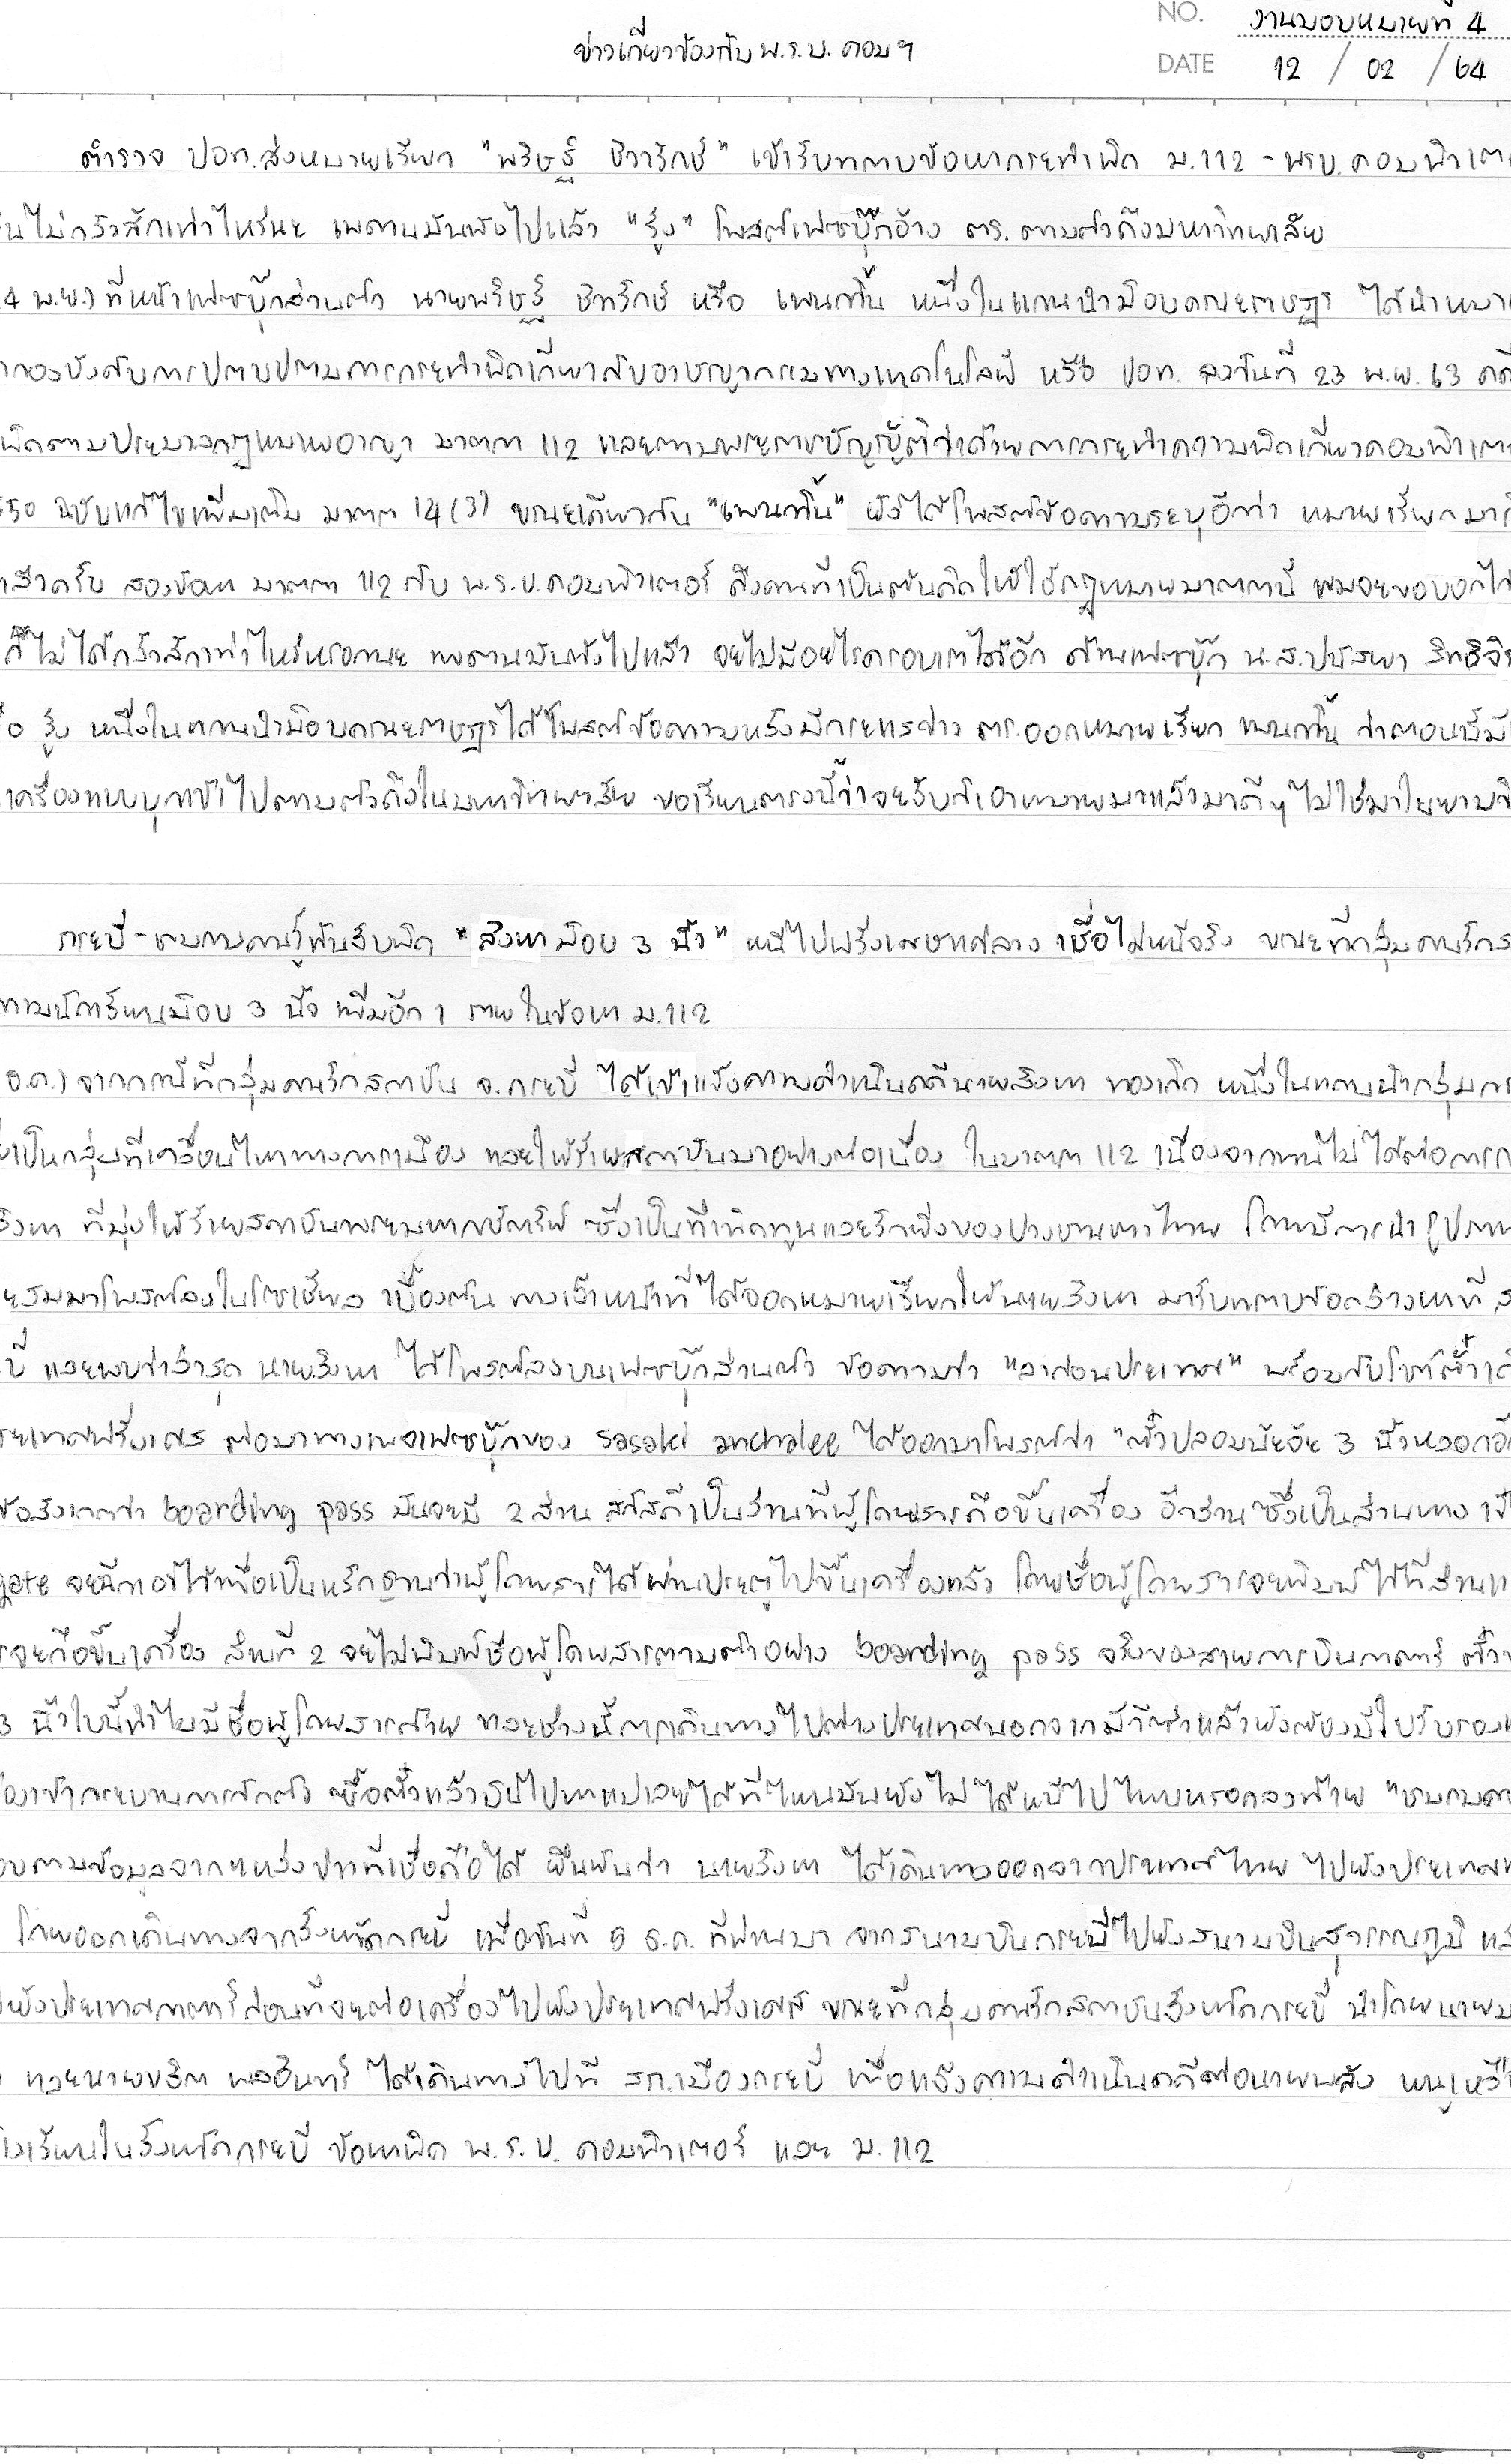 NO. งานมอบหมายที่ 4
ข่าวเกี่ยวข้องกับ พ.ร.บ. คอมฯ
DATE 12 / 02 / 64
ตำรวจ ปอท.ส่งหมายเรียก "พริษฐ์ ชิวารักษ์" เข้ารับทราบข้อหากระทำผิด ม.112 - พรบ.คอมพิวเต
ไม่กลัวสักเท่าไหร่นะ เพดานมันพังไปแล้ว "รุ้ง" โพสต์เฟซบุ๊กอ้าง ตร.ตามตัวถึงมหาวิทยาลัย
4 พ.ย.) ที่หน้าเฟซบุ๊กส่วนตัว นายพริษฐ์ ชิวารักษ์ หรือ เพนกวิ้น หนึ่งในแกนนำม็อบคณะราษฎร ได้นำหมา
กองบังคับการปราบปรามการกระทำผิดเกี่ยวกับอาชญากรรมทางเทคโนโลยี หรือ ปอท. ลงวันที่ 23 พ.ย. 63 คดี
ผิดตามประมวลกฎหมายอาญา มาตรา 112 และตามพระราชบัญญัติว่าด้วยการกระทำความผิดเกี่ยวคอมพิวเตอ
550 ฉบับแก้ไขเพิ่มเติม มาตรา 14(3) ขณะเดียวกัน "เพนกวิ้น" ยังได้โพสต์ข้อความระบุอีกว่า หมายเรียกมา
แล้วครับ สองข้อหา มาตรา 112 กับ พ.ร.บ.คอมพิวเตอร์ ถึงคนที่เป็นต้นคิดให้ใช้กฎหมายมาตรานี้ ผมจะขอบอกไว้
ก็ไม่ได้กลัวสักเท่าไหร่หรอกนะ เพดานมันพังไปแล้ว จะไม่มีอะไรครอบเราได้อีก ด้านเฟซบุ๊ก น.ส.ปนัสยา สิทธิจิร
รุ้ง หนึ่งในแกนนำม็อบคณะราษฎรได้โพสต์ข้อความหลังมีกระแสข่าว ตร.ออกหมายเรียก เพนกวิ้น ว่าตอนนี้มี
เครื่องแบบบุกเข้าไปตามตัวถึงในมหาวิทยาลัย ขอเรียนตรงนี้ว่าจะรับก็เอาหมายมาแล้วมาดีๆ ไม่ใช่มาในยามวิ
กระบี่-ชมรมคนรู้ทันจับผิด "สิงหา ม็อบ 3 นิ้ว" หนีไปฝรั่งเศษแค่ลวง เชื่อไม่หนีจริง ขณะที่กลุ่มคนรักส
ความนักเรียนม็อบ 3 นิ้ว เพิ่มอีก 1 ราย ในข้อหา ม.112
ธ.ค.) จากกรณีที่กลุ่มคนรักสถาบัน จ.กระบี่ ได้เข้าแจ้งความดำเนินคดีนายสิงหา ทองเกิด หนึ่งในแกนนำกลุ่มกร
เป็นกลุ่มที่เคลื่อนไหวทางการเมือง และให้ร้ายสถาบันมาอย่างต่อเนื่อง ในมาตรา 112 เนื่องจากทนไม่ได้ต่อการก
สิงหา ที่มุ่งให้ร้ายสถาบันพระมหากษัตริย์ ซึ่งเป็นที่เทิดทูนและรักยิ่งของปวงชนชาวไทย โดยมีการนำรูปภาพ
มาโพสต์ลงในโซเชียล เบื้องต้น ทางเจ้าหน้าที่ได้ออกหมายเรียกให้นายสิงหา มารับทราบข้อกล่าวหาที่ ส
บี่ และพบว่าล่าสุด นายสิงหา ได้โพสต์ลงบนเฟซบุ๊กส่วนตัว ข้อความว่า "ลาก่อนประเทศ" พร้อมกับโชว์ตั๋วเดิ
ประเทศฝรั่งเศส ต่อมาทางเพจเฟซบุ๊กของ sasaki anchalee ได้ออกมาโพสต์ว่า "ตั๋วปลอมนี่จ้ะ 3 นิ้วหลอกอี
ข้อสังเกตว่า boarding pass มันจะมี 2 ส่วน ส่วนเป็นส่วนที่ผู้โดยสารถือขึ้นเครื่อง อีกส่วนซึ่งเป็นส่วนทาง เจ้
gate จะฉีกเอาไว้เพื่อเป็นหลักฐานว่าผู้โดยสารได้ผ่านประตูไปขึ้นเครื่องแล้ว โดยชื่อผู้โดยสารจะพิมพ์ไว้ที่ส่วนแ
จะถือขึ้นเครื่อง ส่วนที่ 2 จะไม่พิมพ์ชื่อผู้โดยสารตามตัวอย่าง boarding pass จริงของสายการบินกาตาร์ ตั๋ว
3 นิ้วใบนี้ทำไมมีชื่อผู้โดยสารด้วย และช่วงนี้การเดินทางไปต่างประเทศนอกจากมีวีซ่าแล้วยังต้องมีใบรับรอง
ต้องเข้ากระบวนการกักตัว ซื้อตั๋วแล้วบินไปหาแปเลยได้ที่ไหนมันยังไม่ได้หนีไปไหนหรอกลงท้าย "ชมรมคน
ตามข้อมูลจากแหล่งข่าวที่เชื่อถือได้ ยืนยันว่า นายสิงหา ได้เดินทางออกจากประเทศไทย ไปยังประเทศ
โดยออกเดินทางจากจังหวัดกระบี่ เมื่อวันที่ 5 ธ.ค. ที่ผ่านมา จากสนามบินกระบี่ไปยังสนามบินสุวรรณภูมิ และ
ยังประเทศกาตาร์ก่อนที่จะต่อเครื่องไปยังประเทศฝรั่งเศส ขณะที่กลุ่มคนรักสถาบันจังหวัดกระบี่ นำโดยนายม
และนายชลิต พลอินทร์ ได้เดินทางไปที่ สภ.เมืองกระบี่ เพื่อแจ้งความดำเนินคดีต่อนายพลัง หนูเหลื
โรงเรียนในจังหวัดกระบี่ ข้อหาผิด พ.ร.บ. คอมพิวเตอร์ และ ม.112